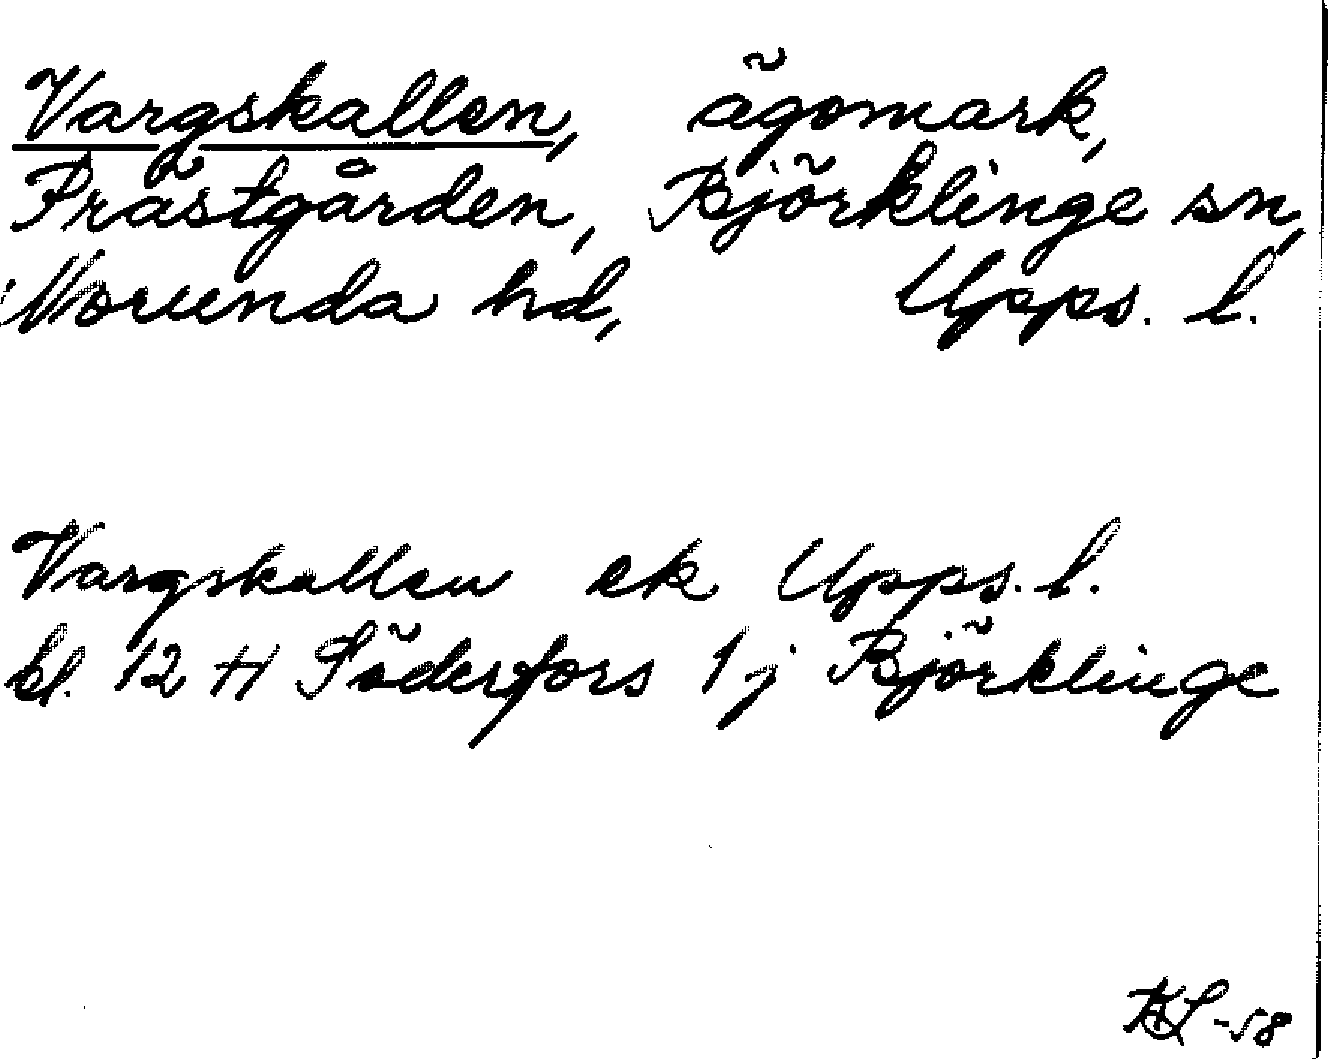 Vargskallen, ägomark,
Prästgården, Björklinge sn,
Norunda hd, Upps. l.
Vargskallen ek Upps. l.
bl. 12 H Söderfors 1 j Björklinge
KL -58